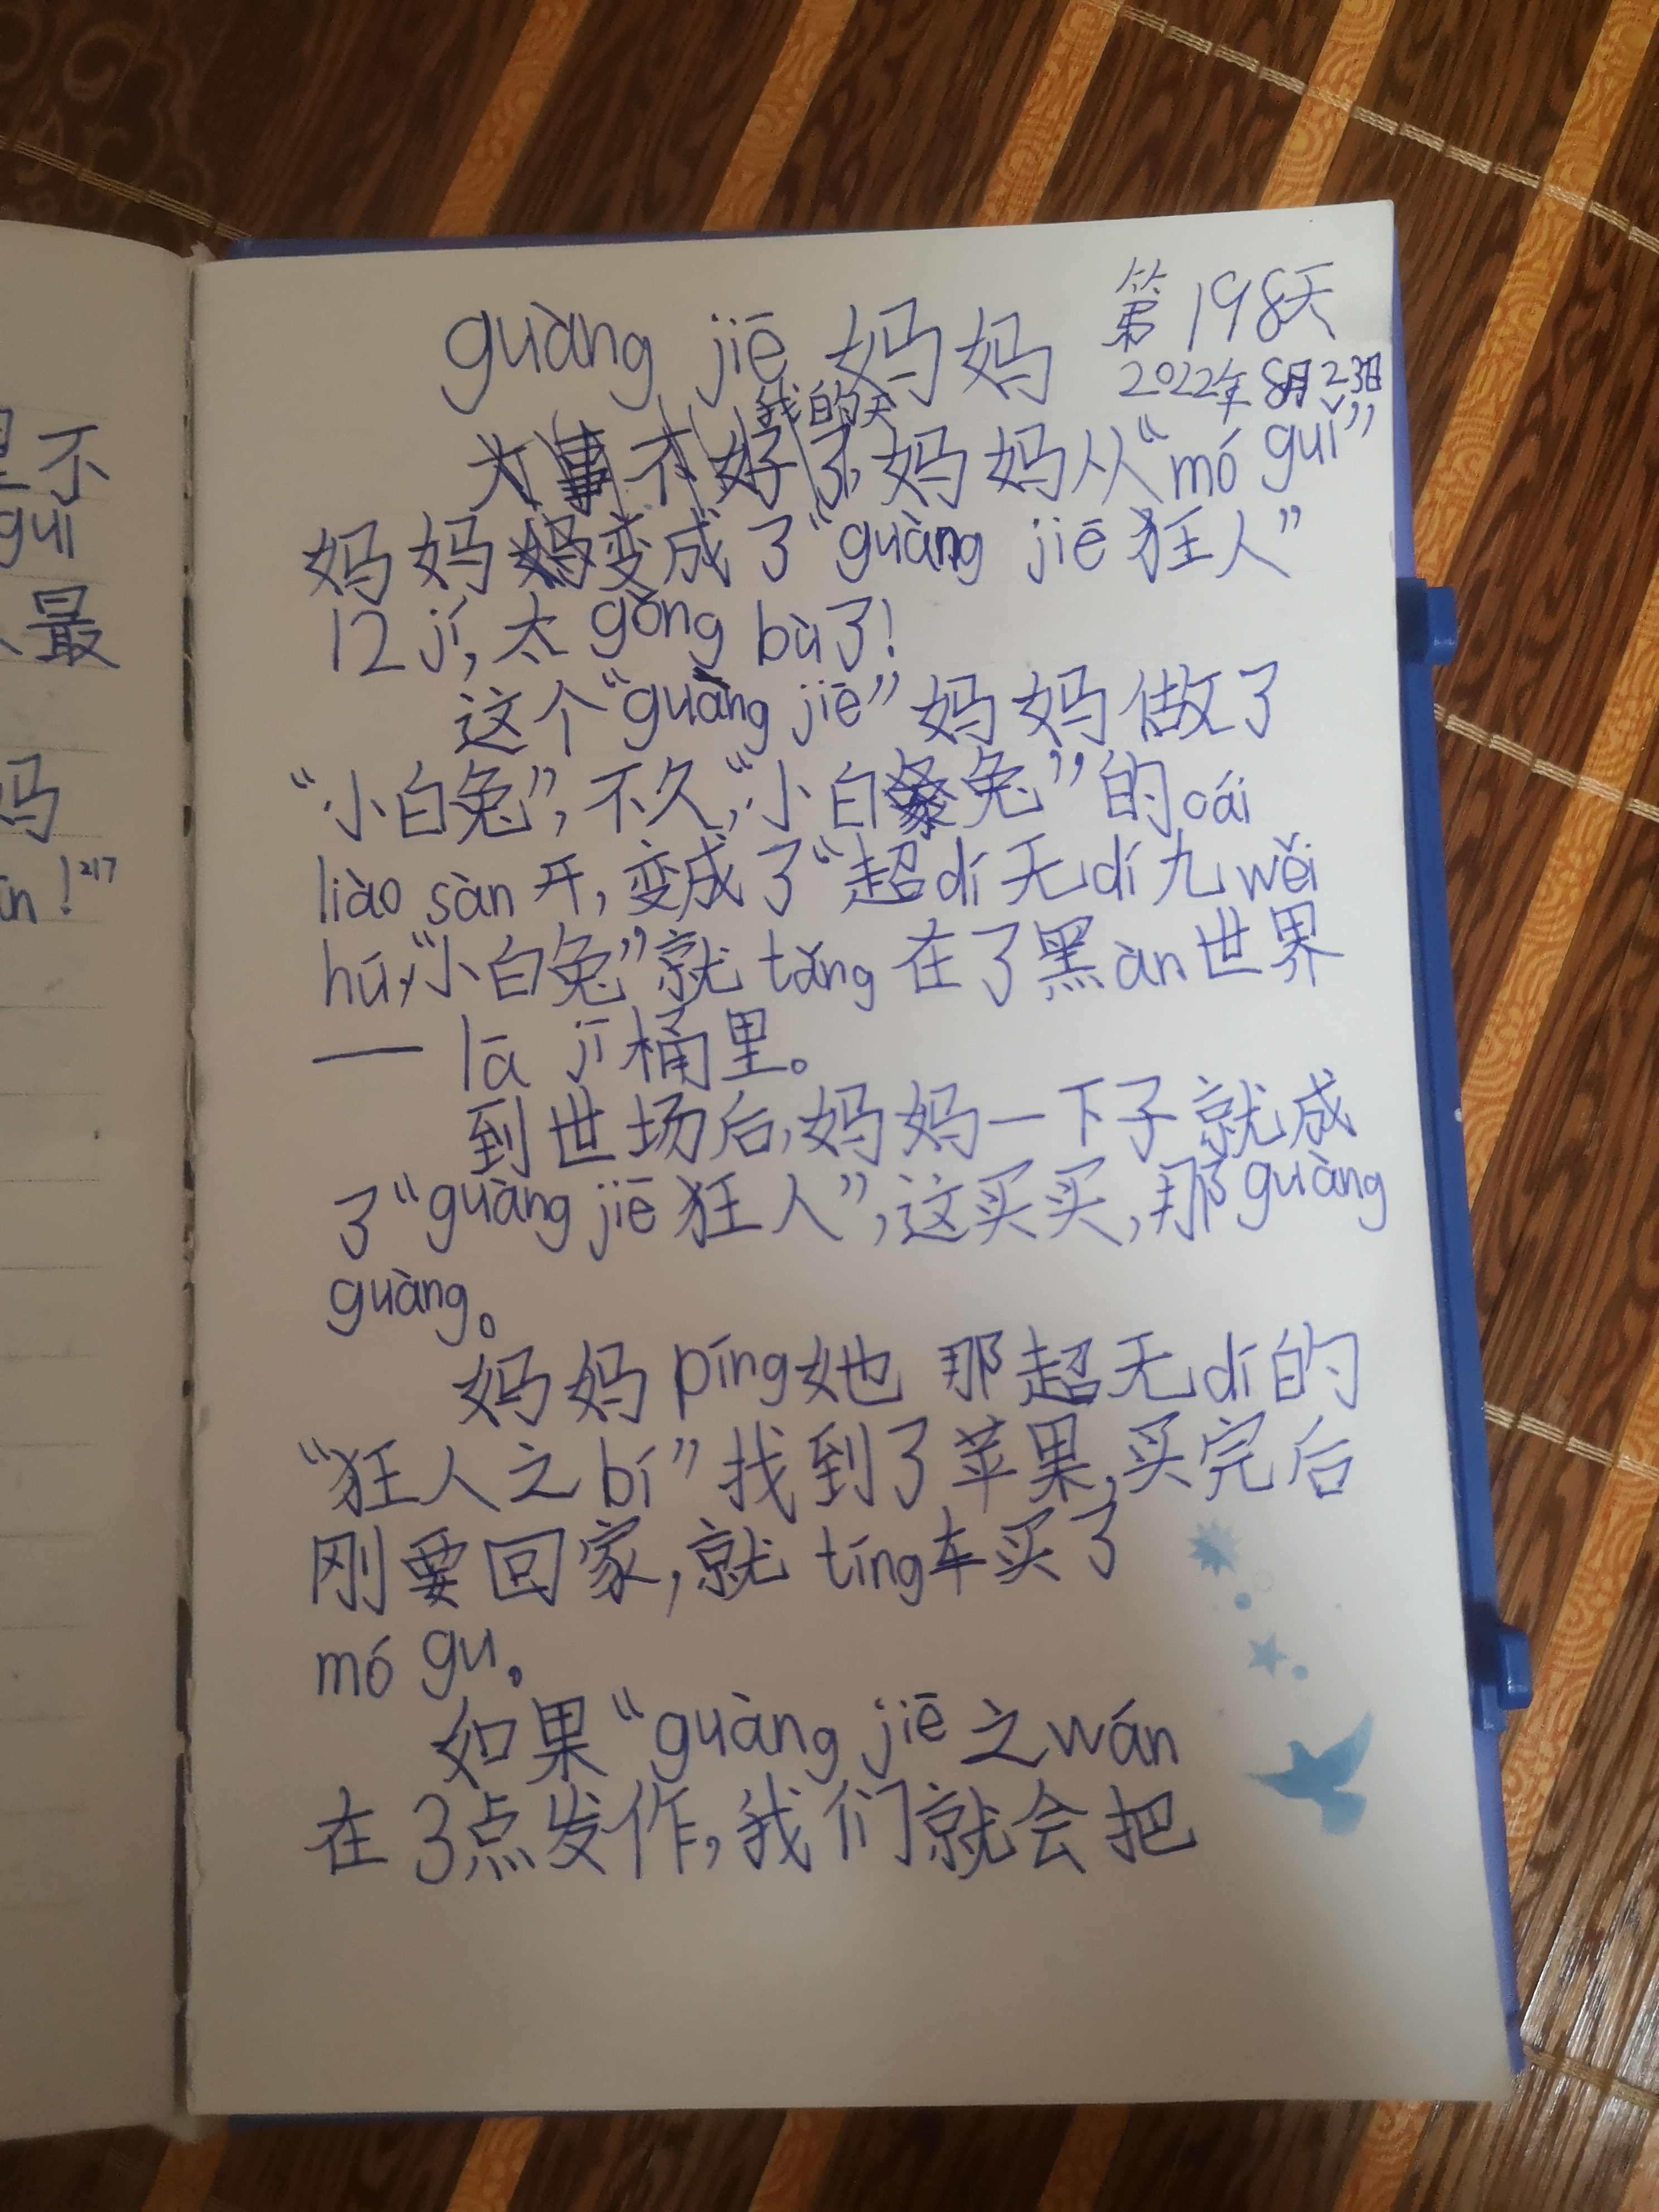 里不
gui
、最
妈
in！217
guàng jiē 妈妈
第198天
2022年8月23日
我的天
大事不好了,妈妈从“mó guǐ”
妈妈变成了“guàng jiē 狂人”
12 jí,太 gǒng bù了!
这个“guàng jiē”妈妈做了
“小白兔”,不久,“小白兔”的cái
liào sàn 开,变成了“超dí无dí九wěi
hú,“小白兔”就 tǎng 在了黑àn世界
— lā jī 桶里。
到世场后,妈妈一下子就成
了“guàng jiē 狂人”,这买买,那guàng
guàng。
妈妈píng她 那超无dí的
“狂人之bí”找到了苹果,买完后
刚要回家,就 tíng车买了
mó gu。
如果“guàng jiē 之wán
在3点发作,我们就会把